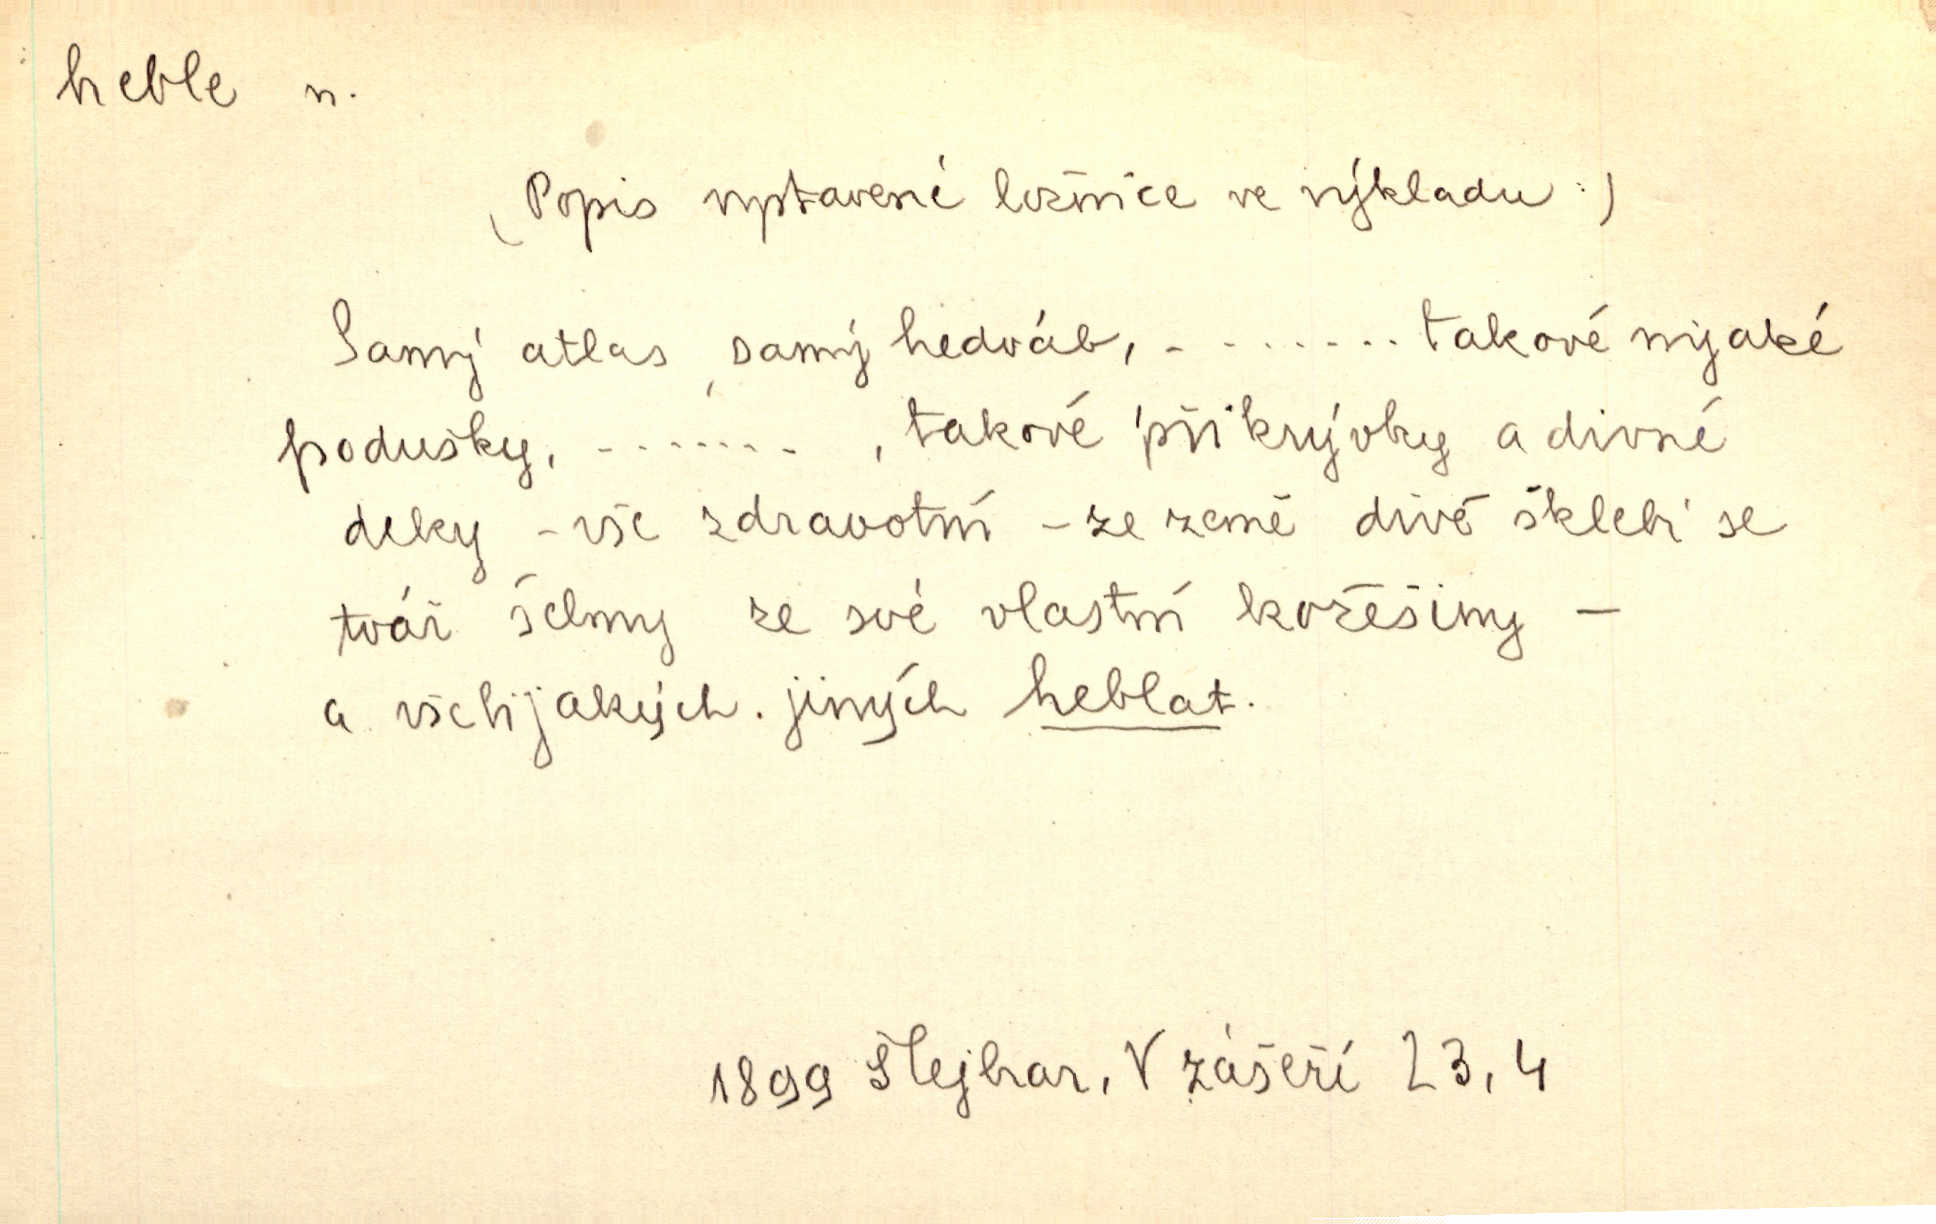 heble n.
(Popis vystavené ložnice ve výkladu:)
Samý atlas, samý hedváb, - ....... takové nijaké
podušky, - ....... , takové přikrývky a divné
deky - vše zdravotní - ze země divě šklebí se
tvář šelmy ze své vlastní kožešiny -
a všelijakých jiných heblat.
1899 Šlejhar, V zášeří 23, 4